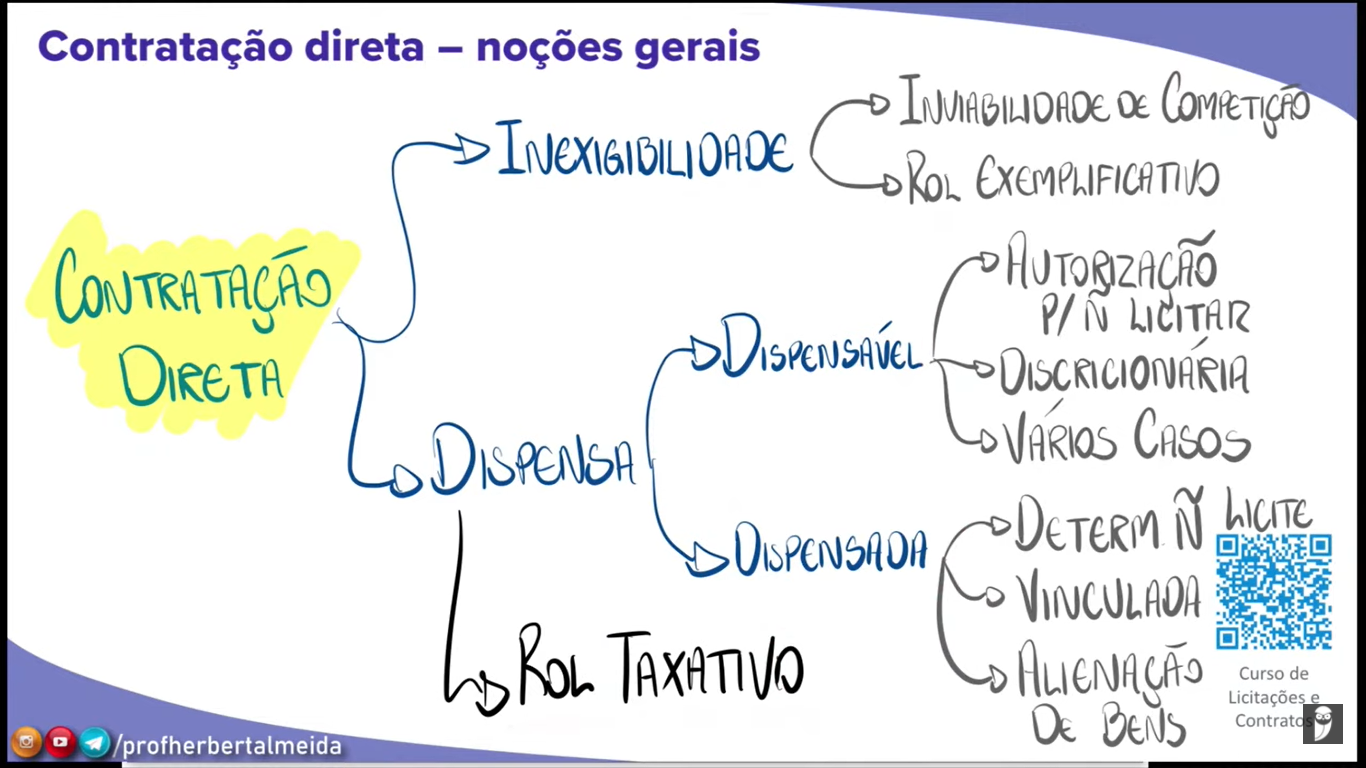 Contratação direta – noções gerais
CONTRATAÇÃO
DIRETA
INEXIGIBILIDADE
INVIABILIDADE DE COMPETIÇÃO
ROL EXEMPLIFICATIVO
DISPENSA
DISPENSÁVEL
AUTORIZAÇÃO
P/ Ñ LICITAR
DISCRICIONÁRIA
VÁRIOS CASOS
DISPENSADA
DETERM. Ñ LICITE
VINCULADA
ALIENAÇÃO
DE BENS
ROL TAXATIVO
Curso de
Licitações e
Contratos
/profherbertalmeida